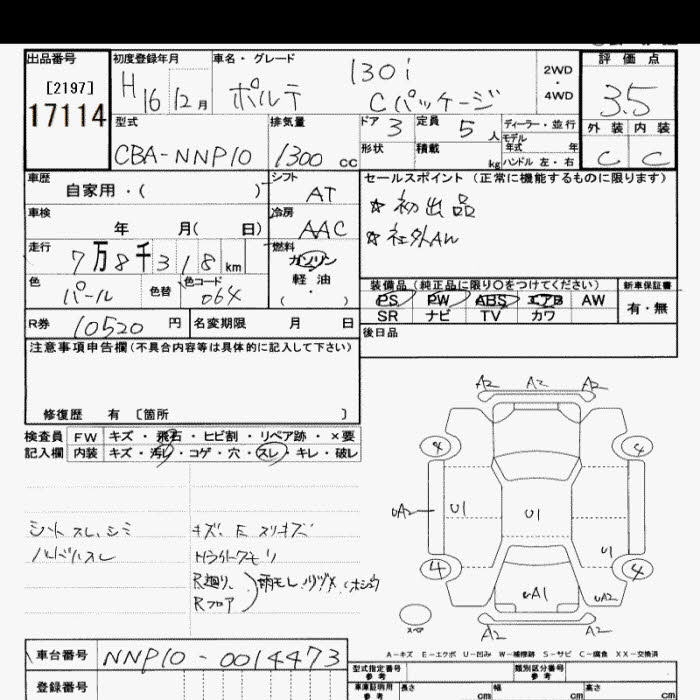 出品番号 初度登録年月 車名・グレード 評価点
[2197] H16 12月 ポルテ 130i Cパッケージ 2WD・4WD 3.5
17114 外装 内装
型式 排気量 ドア 3 定員 5人 ディーラー・並行
CBA-NNP10 1300cc 形状 積載 kg モデル年式 年 C C
ハンドル 左・右
車歴 シフト セールスポイント(正常に機能するものに限ります)
自家用・( ) AT ☆ 初出品
車検 冷房 ☆ 社外AW
年 月( 日) AAC
走行 燃料
7万8千318km ガソリン
色 色替 色コード 軽油
パール 064 ・( )
装備品(純正品に限り○をつけてください) 新車保証書
PS PW ABS エアB AW 有・無
SR ナビ TV カワ
R券 10520円 名変期限 月 日
後日品
注意事項申告欄(不具合内容等は具体的に記入して下さい)
修復歴 有 〔箇所 〕
検査員 FW キズ・飛石・ヒビ割・リペア跡・×要
記入欄 内装 キズ・汚レ・コゲ・穴・スレ・キレ・破レ
A2 A2 A2
4 4
UA2 U1 U1
U1
4 4
A1 UA2
A2 A2
スペア
シート スレ、シミ キズ、E スリキズ
ハンドルスレ
R廻り、
Rフロア
雨モレ
A-キズ E-エクボ U-凹み W-補修跡 S-サビ C-腐食 XX-交換済
車台番号 NNP10-0014473
登録番号
型式指定番号 参考 類別区分番号 参考
車庫証明用 参考 長さ cm 幅 cm 高さ cm